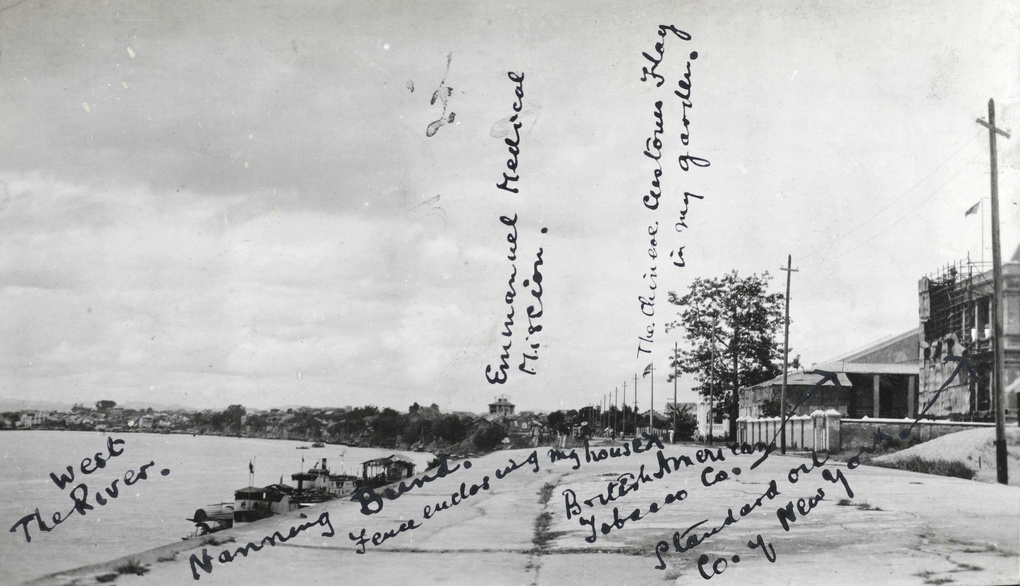 Emmanuel Medical
Mission.
The Chinese Customs Flag
in my garden.
The West
River.
Nanning Bund.
Fence enclosing my house
British American
Tobacco Co.
Standard oil
Co. of New York